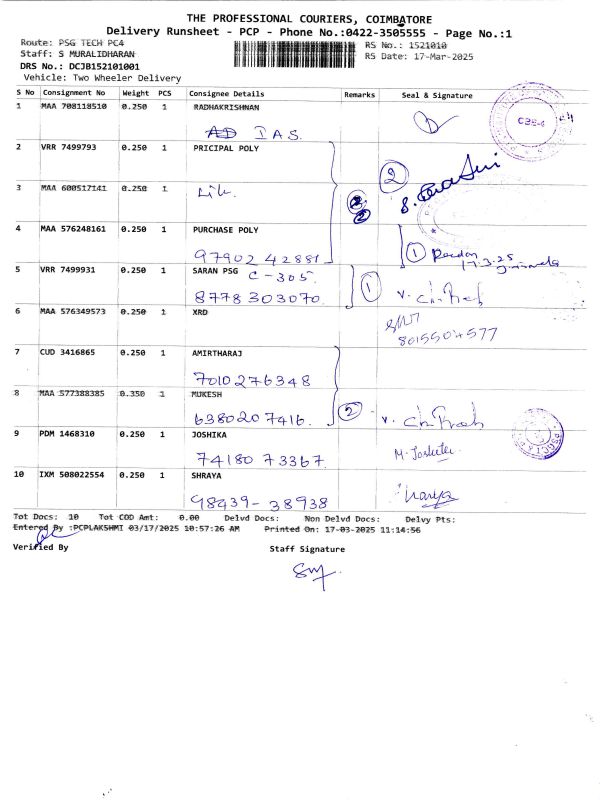 THE PROFESSIONAL COURIERS, COIMBATORE
Delivery Runsheet - PCP - Phone No.:0422-3505555 - Page No.:1
Route: PSG TECH PC4
RS No.: 1521010
Staff: S MURALIDHARAN
RS Date: 17-Mar-2025
DRS No.: DCJB152101001
Vehicle: Two Wheeler Delivery
S No Consignment No Weight PCS Consignee Details Remarks Seal & Signature
1 MAA 708118510 0.250 1 RADHAKRISHNAN
AD I A S.
CBE-4
2 VRR 7499793 0.250 1 PRICIPAL POLY
2
3 MAA 600517141 0.250 1
Lib.
2
2
4 MAA 576248161 0.250 1 PURCHASE POLY
97902 42881
1
17.3.25
5 VRR 7499931 0.250 1 SARAN PSG C-305.
8778 303070.
1
6 MAA 576349573 0.250 1 XRD
8015504577
7 CUD 3416865 0.250 1 AMIRTHARAJ
7010276348
8 MAA 577388385 0.350 1 MUKESH
6380207416.
2
9 PDM 1468310 0.250 1 JOSHIKA
74180 73367.
10 IXM 508022554 0.250 1 SHRAYA
98439-38938
Tot Docs: 10 Tot COD Amt: 0.00 Delvd Docs: Non Delvd Docs: Delvy Pts:
Entered By :PCPLAKSHMI 03/17/2025 10:57:26 AM Printed On: 17-03-2025 11:14:56
Verified By
Staff Signature